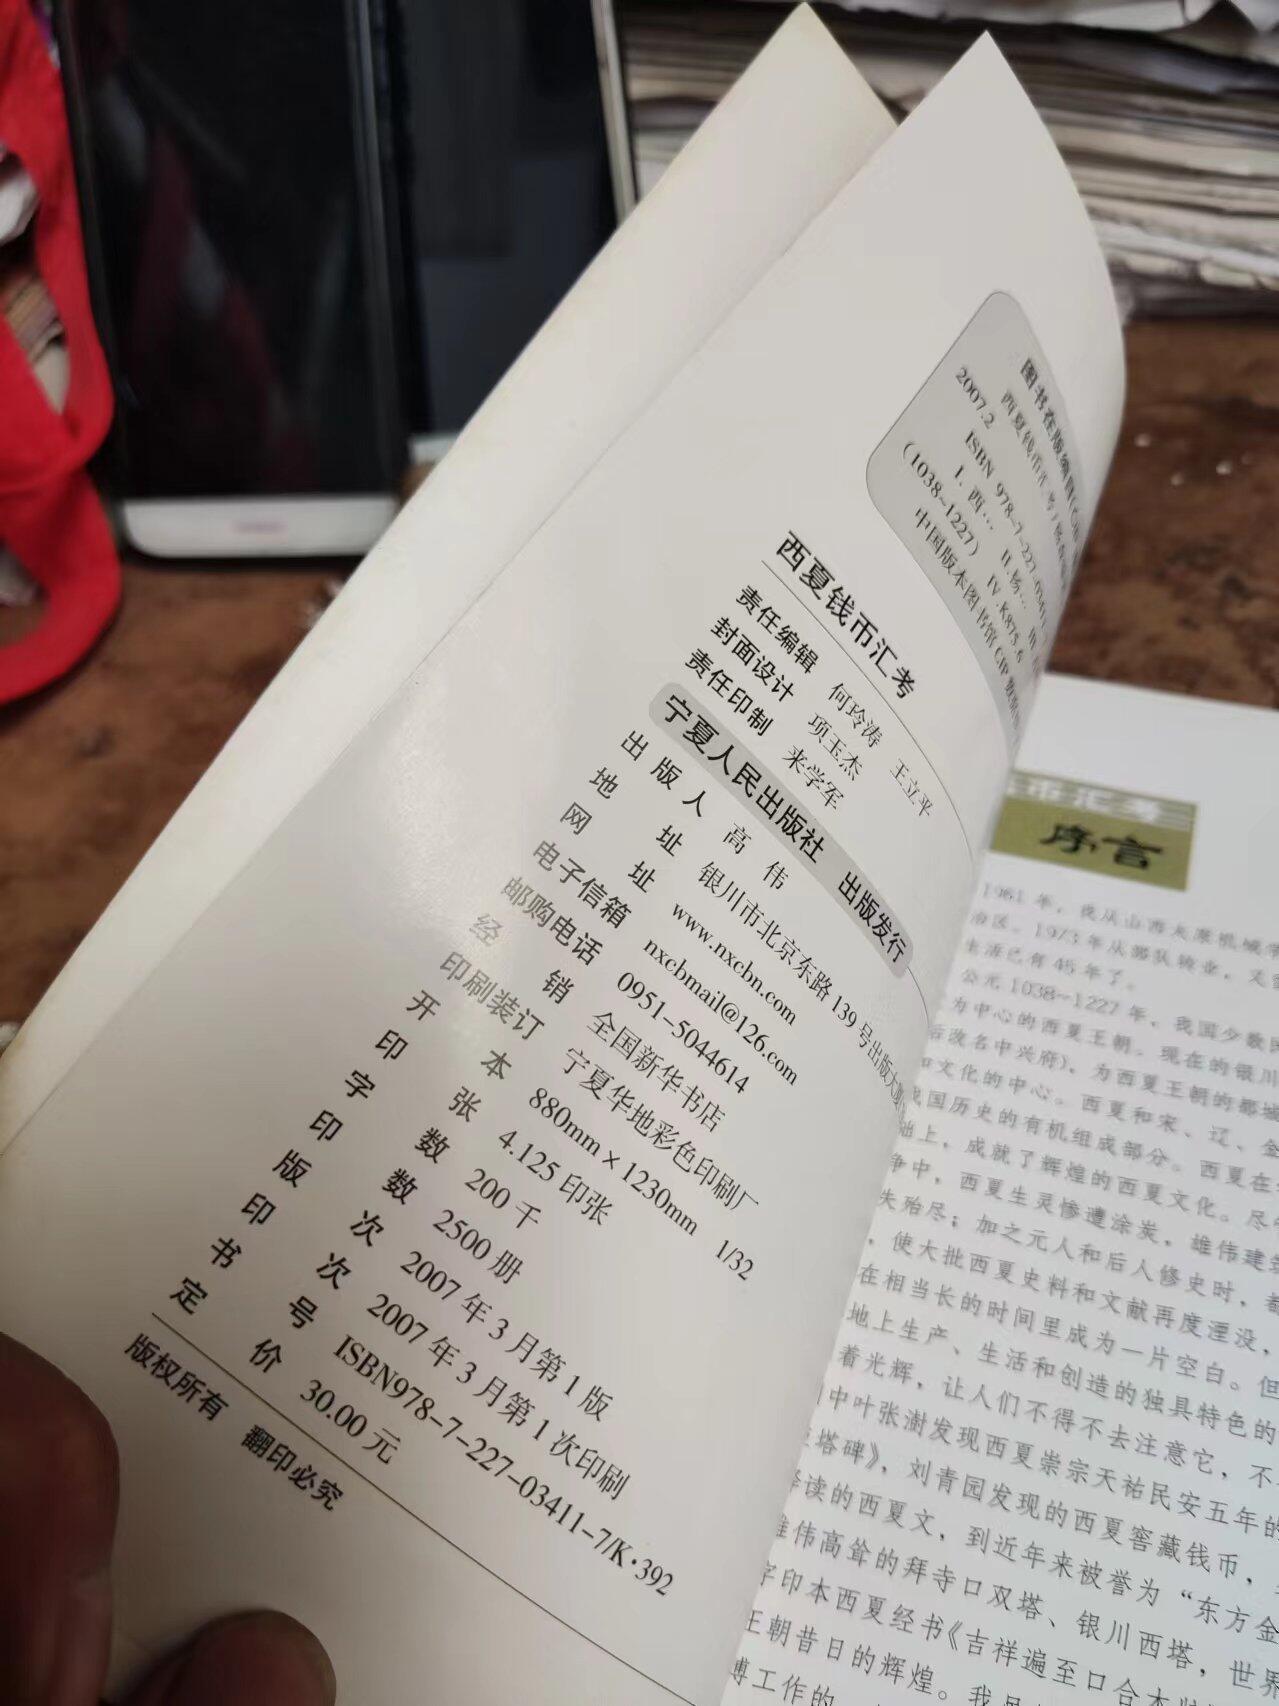 图书在版编目(CIP
西夏钱币汇考/杨森
2007.2
ISBN 978-7-227-03411-
Ⅰ.西… Ⅱ.杨…
(1038~1227) Ⅳ.K875.6
中国版本图书馆CIP数据
西夏钱币汇考
责任编辑 何玲涛 王立平
封面设计 项玉杰
责任印制 来学军
宁夏人民出版社 出版发行
出版人 高伟
地址 银川市北京东路139号出版大
网址 www.nxcbn.com
电子信箱 nxcbmail@126.com
邮购电话 0951-5044614
经销 全国新华书店
印刷装订 宁夏华地彩色印刷厂
开本 880mm×1230mm 1/32
印张 4.125印张
字数 200千
印数 2500册
版次 2007年3月第1版
印次 2007年3月第1次印刷
书号 ISBN978-7-227-03411-7/K·392
定价 30.00元
版权所有 翻印必究
币汇考
序言
1961年，我从山西太原机械学
治区。1973年从部队转业，又
生活已有45年了。
公元1038~1227年，我国少数民
为中心的西夏王朝。现在的银川
后改名中兴府)，为西夏王朝的都城
和文化的中心。西夏和宋、辽、金
我国历史的有机组成部分。西夏在
础上，成就了辉煌的西夏文化。尽
争中，西夏生灵惨遭涂炭，雄伟建筑
失殆尽；加之元人和后人修史时，都
，使大批西夏史料和文献再度湮没，
在相当长的时间里成为一片空白。但
地上生产、生活和创造的独具特色的
着光辉，让人们不得不去注意它，不
中叶张澍发现西夏崇宗天祐民安五年的
塔碑》，刘青园发现的西夏窖藏钱币，
读的西夏文，到近年来被誉为“东方金
雄伟高耸的拜寺口双塔、银川西塔，世界
字印本西夏经书《吉祥遍至口合本
王朝昔日的辉煌。我
博工作的